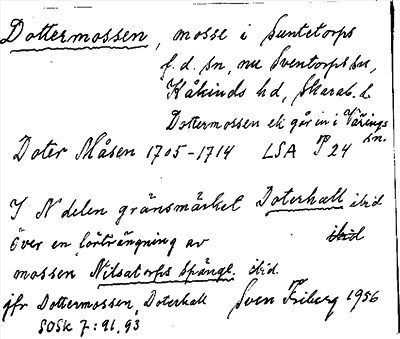 Dottermossen, mosse i Suntetorps
f.d. sn, nu Sventorps sn,
Kåkinds hd, Skarab. l.
Dottermossen el. går in i Värings
sn.
Doter Måsen 1705-1714 LSA P 24
I N delen gränsmärket Doterhall ibid
över en förträngning av ibid
mossen Nilsatorps spånge. ibid.
jfr Dottermossen, Doterhall Sven Friberg 1956
SOSk 7:91, 93